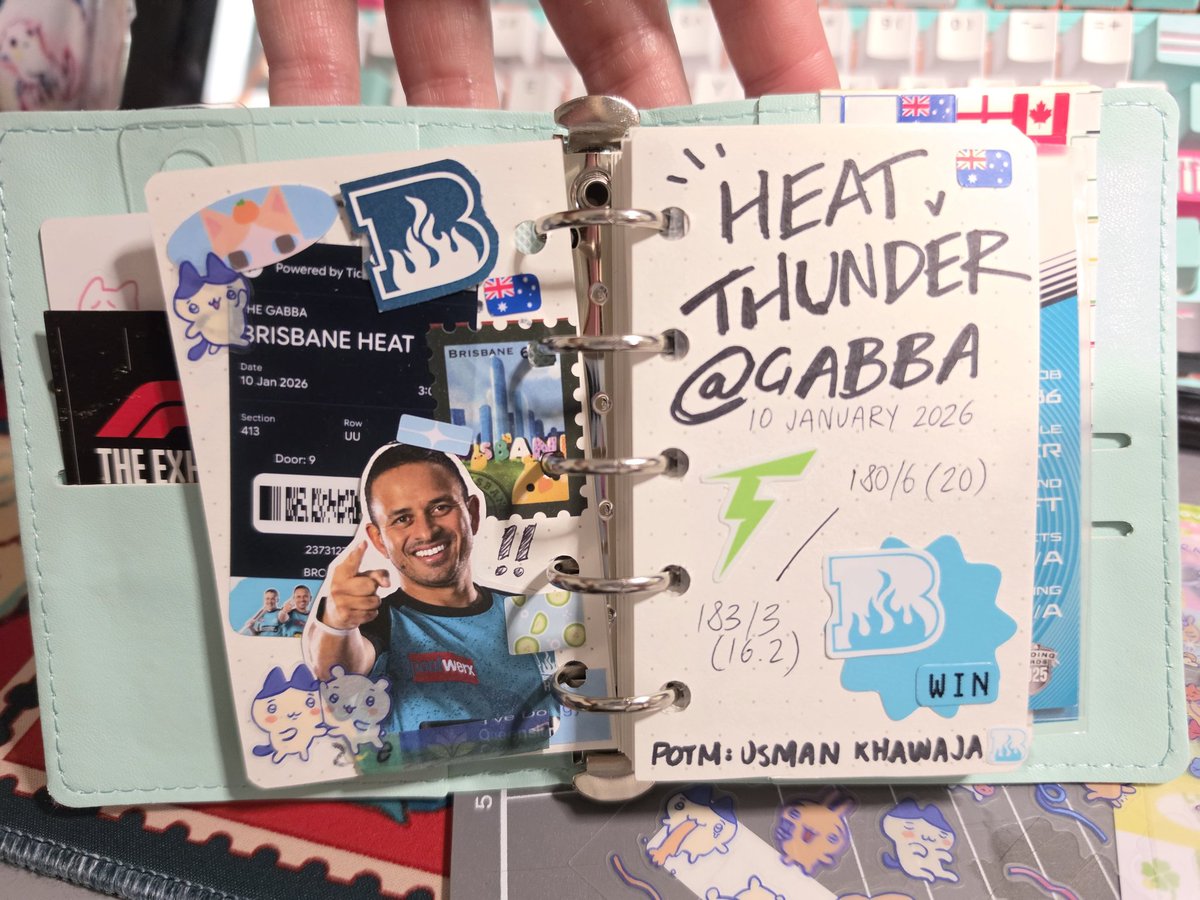 Powered by
THE GABBA
BRISBANE HEAT
Date
10 Jan 2026
3:0
Section
Row
413
UU
Door: 9
2373127
BRC
BRISBANE
THE EXH
!!
Werx
I've Do
Queensl
B
HEAT v
THUNDER
@GABBA
10 JANUARY 2026
180/6 (20)
/
183/3
(16.2)
B
WIN
POTM: USMAN KHAWAJA
5